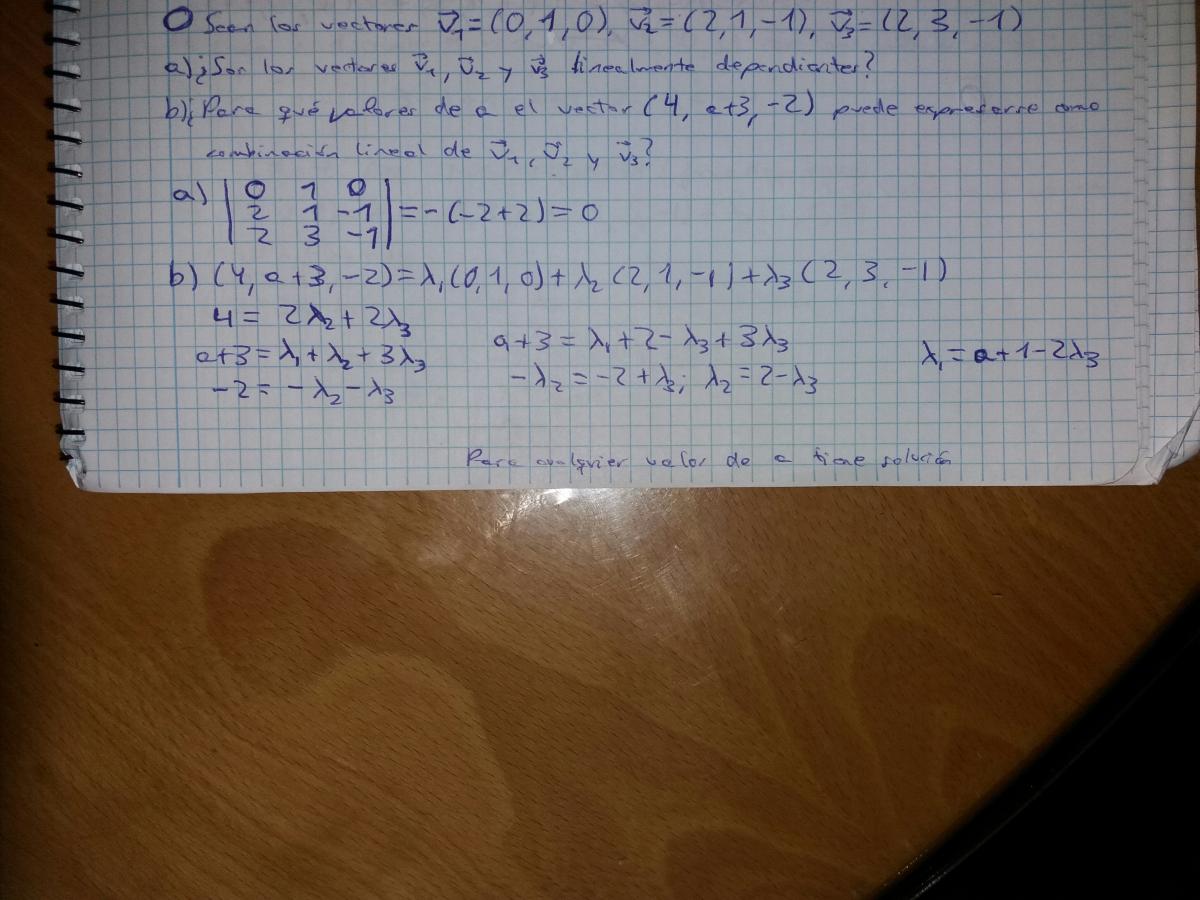 Sean los vectores v⃗₁=(0,1,0), v⃗₂=(2,1,-1), v⃗₃=(2,3,-1)
a)¿Son los vectores v⃗₁, v⃗₂ y v⃗₃ linealmente dependientes?
b)¿Para qué valores de a el vector (4, a+3, -2) puede expresarse como
combinación lineal de v⃗₁, v⃗₂ y v⃗₃?
a) | 0 1 0 |
| 2 1 -1 | = -(-2+2) = 0
| 2 3 -1 |
b) (4, a+3, -2) = λ₁(0,1,0) + λ₂(2,1,-1) + λ₃(2,3,-1)
4 = 2λ₂ + 2λ₃
a+3 = λ₁ + λ₂ + 3λ₃
-2 = -λ₂ - λ₃
a+3 = λ₁ + 2 - λ₃ + 3λ₃
-λ₂ = -2 + λ₃; λ₂ = 2 - λ₃
λ₁ = a + 1 - 2λ₃
Para cualquier valor de a tiene solución